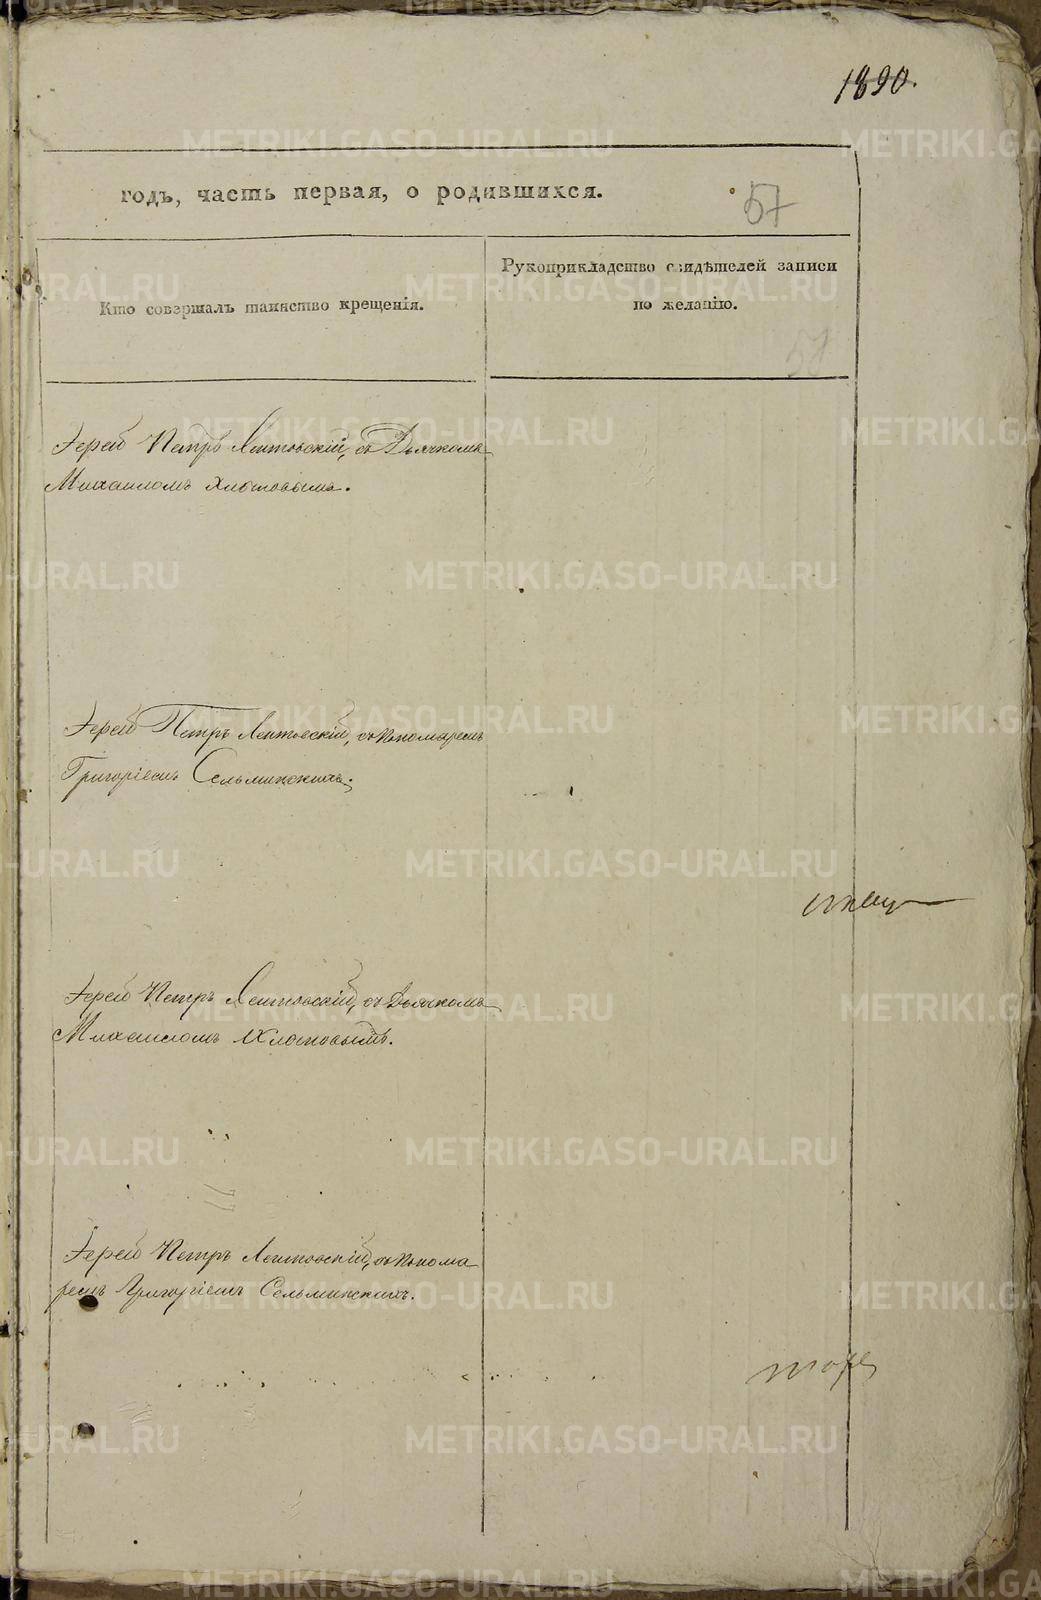 1890.
годъ, часть первая, о родившихся.
57
Кто совершалъ таинство крещенія.
Рукоприкладство свидѣтелей записи
по желанію.
57
Іерей Петръ Лептовскій, съ Дьячкомъ
Михаиломъ Хлотовымъ.
Іерей Петръ Лептовскій, съ Пономаремъ
Григоріемъ Сельминскихъ.
Іерей Петръ Лептовскій, съ Дьячкомъ
Михаиломъ Хлотовымъ.
Іерей Петръ Лептовскій, съ Понома
ремъ Григоріемъ Сельминскихъ.
METRIKI.GASO-URAL.RU